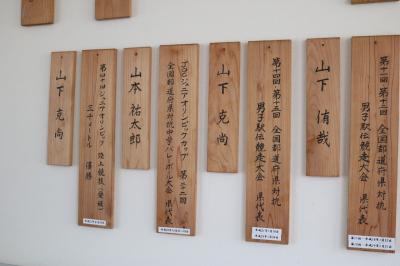 山下侑哉
第十一回 第十二回 全国都道府県対抗
男子駅伝競走大会 県代表
山下克尚
第十四回 第十五回 全国都道府県対抗
男子駅伝競走大会 県代表
山本祐太郎
JOCジュニアオリンピックカップ 第二十二回
全国都道府県対抗中学バレーボール大会 県代表
山下克尚
第四十回ジュニアオリンピック 陸上競技(愛媛)
三千メートル 優勝